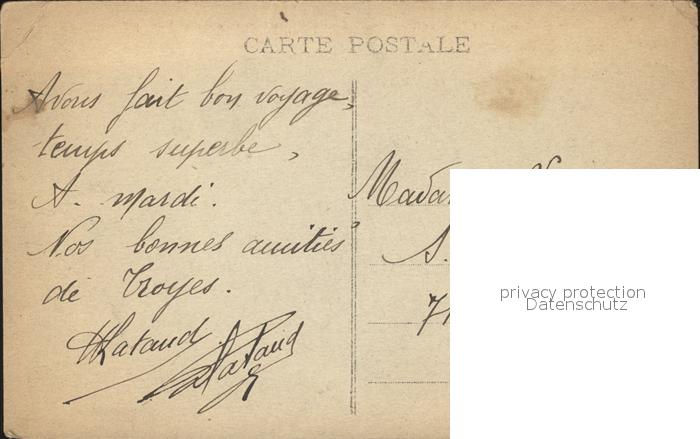 CARTE POSTALE
Avons fait bon voyage,
temps superbe,
A mardi.
Nos bonnes amitiés
de Troyes.
privacy protection
Datenschutz